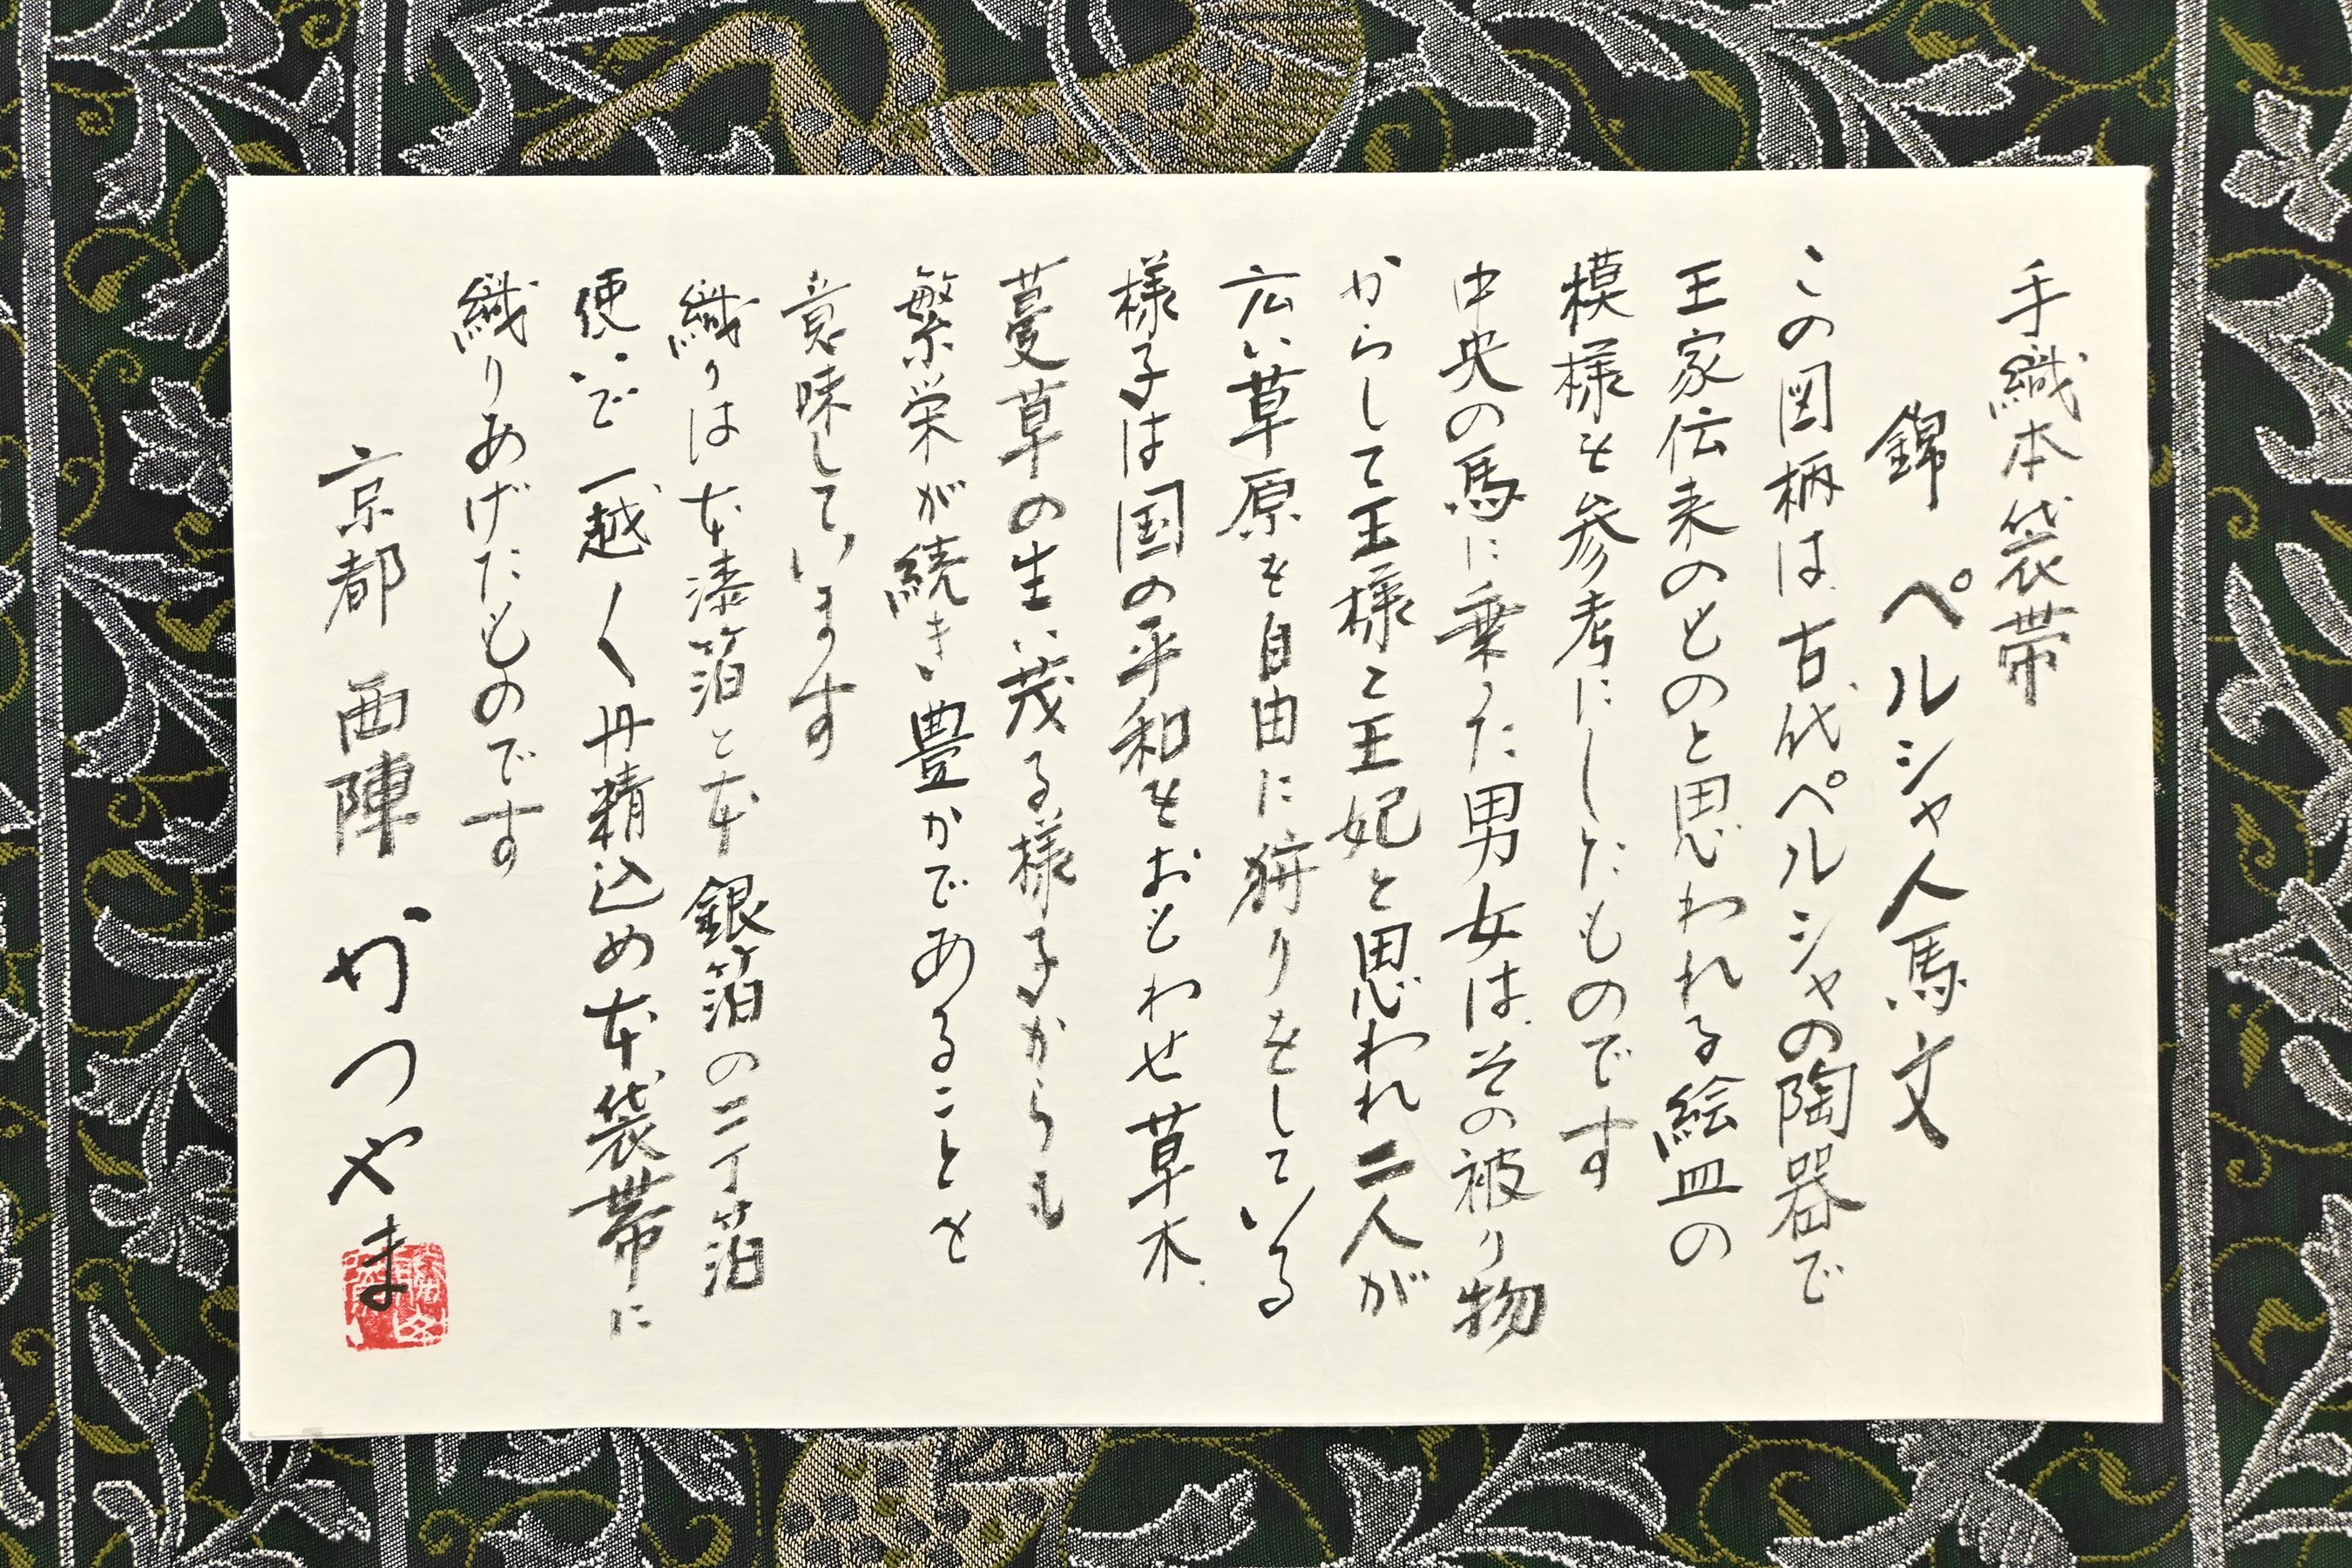 手織本袋帯
錦 ペルシャ人馬文
この図柄は、古代ペルシャの陶器で
王家伝来のものと思われる絵皿の
模様を参考にしたものです
中央の馬に乗った男女は、その被り物
からして王様と王妃と思われ二人が
広い草原を自由に狩りをしている
様子は国の平和をおもわせ草木、
蔓草の生い茂る様子からも
繁栄が続き豊かであることを
意味しています
織りは本漆箔と本銀箔の二丁箔
使いで一越く丹精込め本袋帯に
織りあげたものです
京都 西陣 かつやま